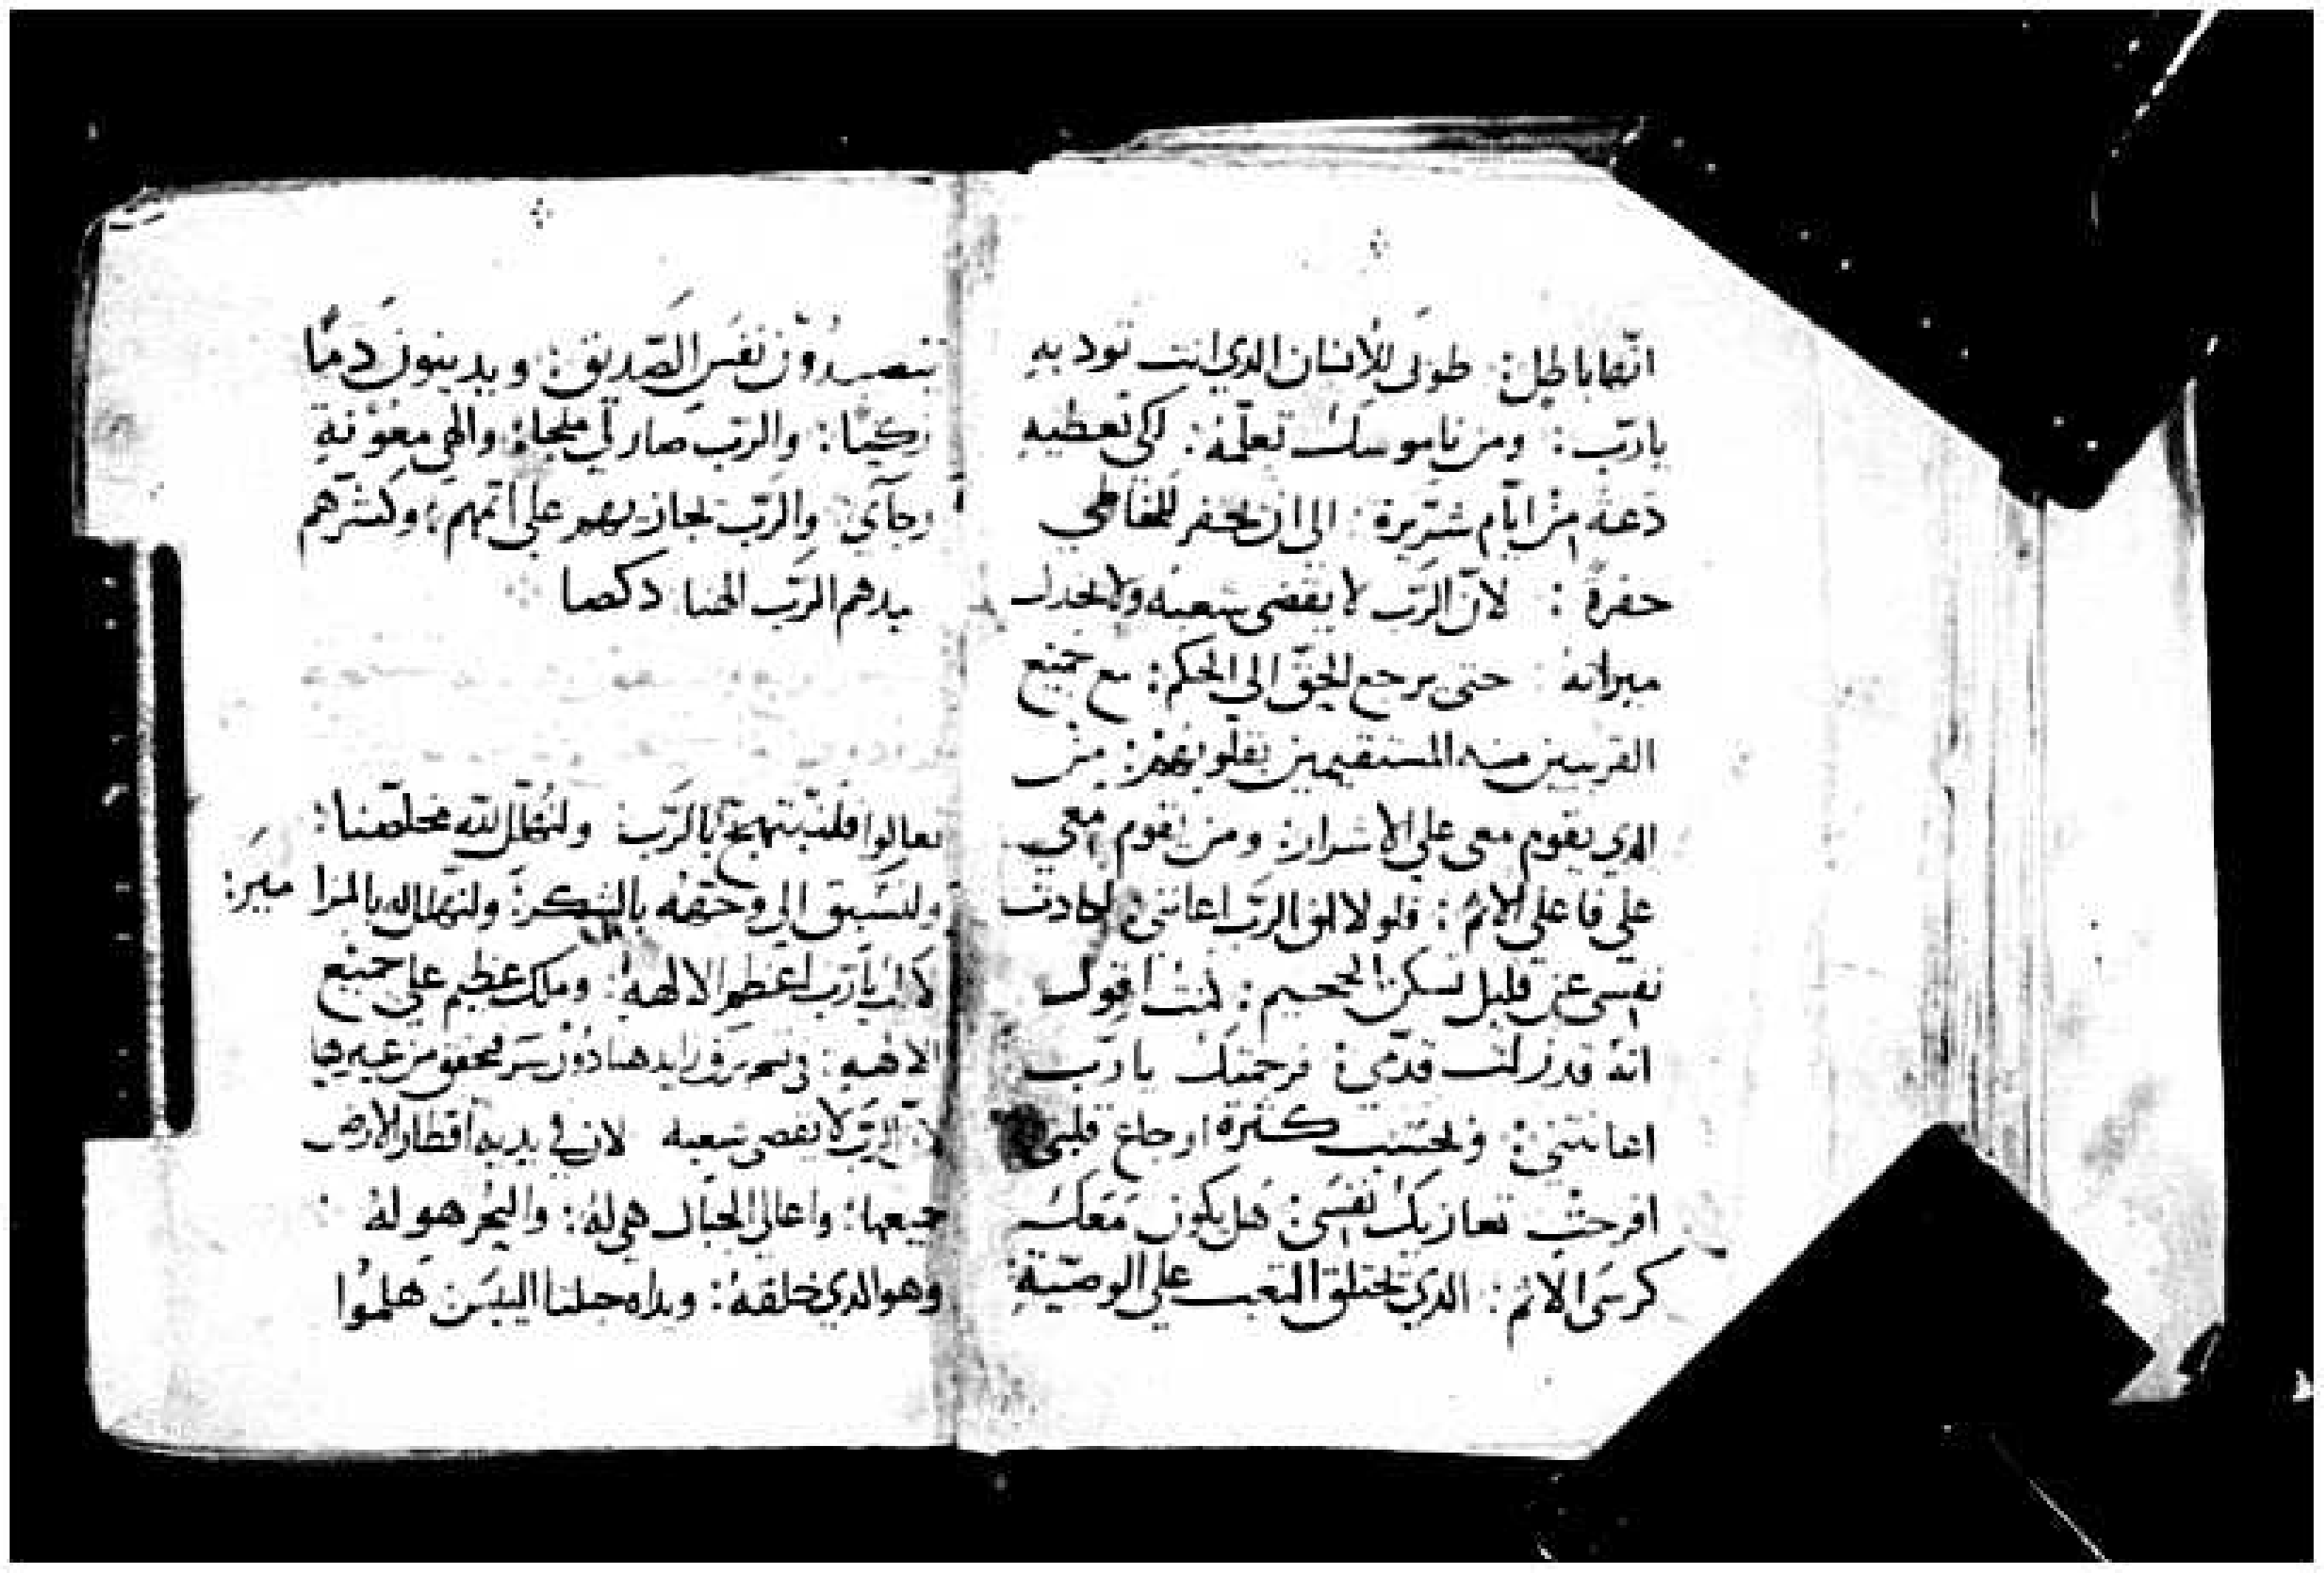 انها باطل: طوبى للانسان الذي انت تودبه
يارب: ومن ناموسك تعلمه: لكي تعطيه
دعة من ايام شريرة: الى ان تحفر للخاطي
حفرة: لان الرب لا يقصى شعبه ولا يخذل
ميراثه حتى يرجع الحق الى الحكم: مع جميع
القريبين منه المستقيمين بقلوبهم: من
الذي يقوم معي على الاشرار: ومن يقوم معي
على فاعلي الاثم: فلولا ان الرب اعانني لكادت
نفسي عن قليل تسكن الجحيم: كنت اقول
انه قد زلت قدمي: فرحمتك يارب
اعانتني: وبحسب كثرة اوجاع قلبي
افرحت تعازيك نفسي: هل يكون معك
كرسي الاثم: الذي يختلق التعب على الوصية
يتصيدون نفس الصديق: ويدينون دما
زكيا: والرب صار لي ملجاء: والهي معونة
رجاي: والرب يجازيهم على اثمهم: وكشرهم
يبدهم الرب الهنا دكصا
تعالوا فلنبتهج بالرب ولنهلل لله مخلصنا:
ولنسبق الى وجهه بالشكر: ولنهلل له بالمزا مير:
لانك يارب اعظم الالهه: وملك عظيم على جميع
الالهه:
لان الرب لا يقصى شعبه لان في يديه اقطار الارض
جميعها: واعالي الجبال هي له: والبحر هو له
وهو الذي خلقه: ويداه جبلتا اليبس هلموا